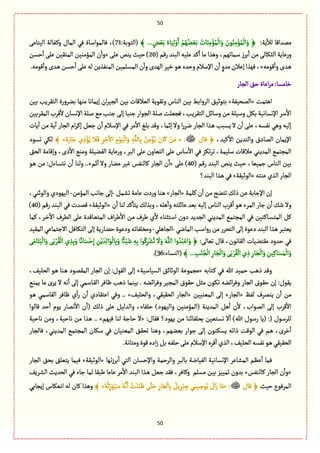 50
مصداقا للآية: ﴿ وَالْمُؤْمِنُونَ وَالْمُؤْمِنَاتُ بَعْضُهُمْ أَوْلِيَاءُ بَعْضٍ... ﴾ (التوبة:71)، فالمواساة في المال وكفالة اليتامى
ورعاية الثكالى من أبرز سماتهم، وهذا ما أكد عليه البند رقم (20) حيث ينص على «وأن المؤمنين المتقين على أحسن
هدى وأقومه»، فهذا إعلان مدوٍ أن الإسلام وحده هو خير الهدى وأن المسلمين المنقذين له على أحسن هدى وأقومه.
خامسا: مراعاة حق الجار
اهتمت «الصحيفة» بتوثيق الروابط بين الناس وتقوية العلاقات بين الجيران إيمانا منها بضرورة التقريب بين
الأسر الإنسانية بكل وسيلة من وسائل التقريب، فجعلت صلة الجوار جنبا إلى جنب مع صلة الإنسان لأقرب المقربين
إليه وهي نفسه، على أن لا يسبب هذا الجار ضررًا ولا إثما، وقد بلغ الأمر في الإسلام أن جعل إكرام الجار آية من آيات
الإيمان الصادق والتدين الأكيد، ﴿ قال ﷺ: « مَنْ كَانَ يُؤْمِنُ بِاللَّهِ وَالْيَوْمِ الْآخِرِ فَلَا يُؤْذِي جَارَهُ» ﴾ لكي تسود
المجتمع المدني علاقات سليمة، ترتكز في الأساس على التعاون على البر، ورعاية الفضيلة ومنع الأذى، وإقامة الحق
بين الناس جميعا، حيث ينص البند رقم (40) على «أن الجار كالنفس غير مضار ولا آثم». ولنا أن نتساءل: من هو
الجار الذي عنته «الوثيقة» في هذا البند؟
إن الإجابة عن ذلك تتضح من أن كلمة «الجار» هنا وردت عامة تشمل -إلى جانب المؤمن- اليهودي والوثني،
ولا شك أن جار المرء هو أقرب الناس إليه بعد عائلته وأهله، وبذلك يتأكد لنا أن «الوثيقة» قصدت في البند رقم (40)
كل المتساكنين في المجتمع المديني الجديد دون استثناء لأي طرف من الأطراف المتعاقدة على الطرف الآخر، كما
يعتبر هذا البند دعوة إلى التحرر من رواسب الماضي -الجاهلي- ومخلفاته ودعوة حضارية إلى التكافل الاجتماعي المقيد
في حدود مقتضيات القانون، قال تعالى: ﴿ وَاعْبُدُوا اللَّهَ وَلَا تُشْرِكُوا بِهِ شَيْئًا وَبِالْوَالِدَيْنِ إِحْسَانًا وَبِذِي الْقُرْبَى وَالْيَتَامَى
وَالْمَسَاكِينِ وَالْجَارِ ذِي الْقُرْبَى وَالْجَارِ الْجُنُبِ... ﴾ (النساء:36).
وقد ذهب حميد الله في كتابه «مجموعة الوثائق السياسية» إلى القول: إن الجار المقصود هنا هو الحليف،
يقول: إن حقوق الجار وفرائضه تكون مثل حقوق المجير وفرائضه. بينما ذهب ظافر القاسمي إلى أنه لا يرى ما يمنع
من أن ينصرف لفظ «الجار» إلى المعنيين «الجار الحقيقي، والحليف» .. وفي اعتقادي أن رأي ظافر القاسمي هو
الأقرب إلى الصواب، لأن أهل المدينة (المؤمنين واليهود) حلفاء، والدليل على ذلك (أن الأنصار يوم أحد قالوا
للرسول: (يا رسول الله) ألا نستعين بحلفائنا من يهود؟ فقال: «لا حاجة لنا فيهم» .. هذا من ناحية، ومن ناحية
أخرى، هم في الوقت ذاته يسكنون إلى جوار بعضهم، وهنا تحقق المعنيان في سكان المجتمع المديني، فالجار
الحقيقي هو نفسه الحليف، الذي أفره الإسلام على حلفه بل زاده قوة ومتانة.
فما أعظم المشاعر الإنسانية الفياضة بالبر والرحمة والإحسان التي أبرزتها «الوثيقة» فيما يتعلق بحق الجار
«وأن الجار كالنفس» بدون تمييز بين مسلم وكافر، فقد جعل هذا البند الأمر عاما طبقا لما جاء في الحديث الشريف
المرفوع حيث ﴿ قال ﷺ: «مَا زَالَ يُوصِينِي جِبْرِيلُ بِالْجَارِ حَتَّى ظَنَنْتُ أَنَّهُ سَيُوَرِّثُهُ» ﴾ وهذا كان له انعكاس إيجابي
50